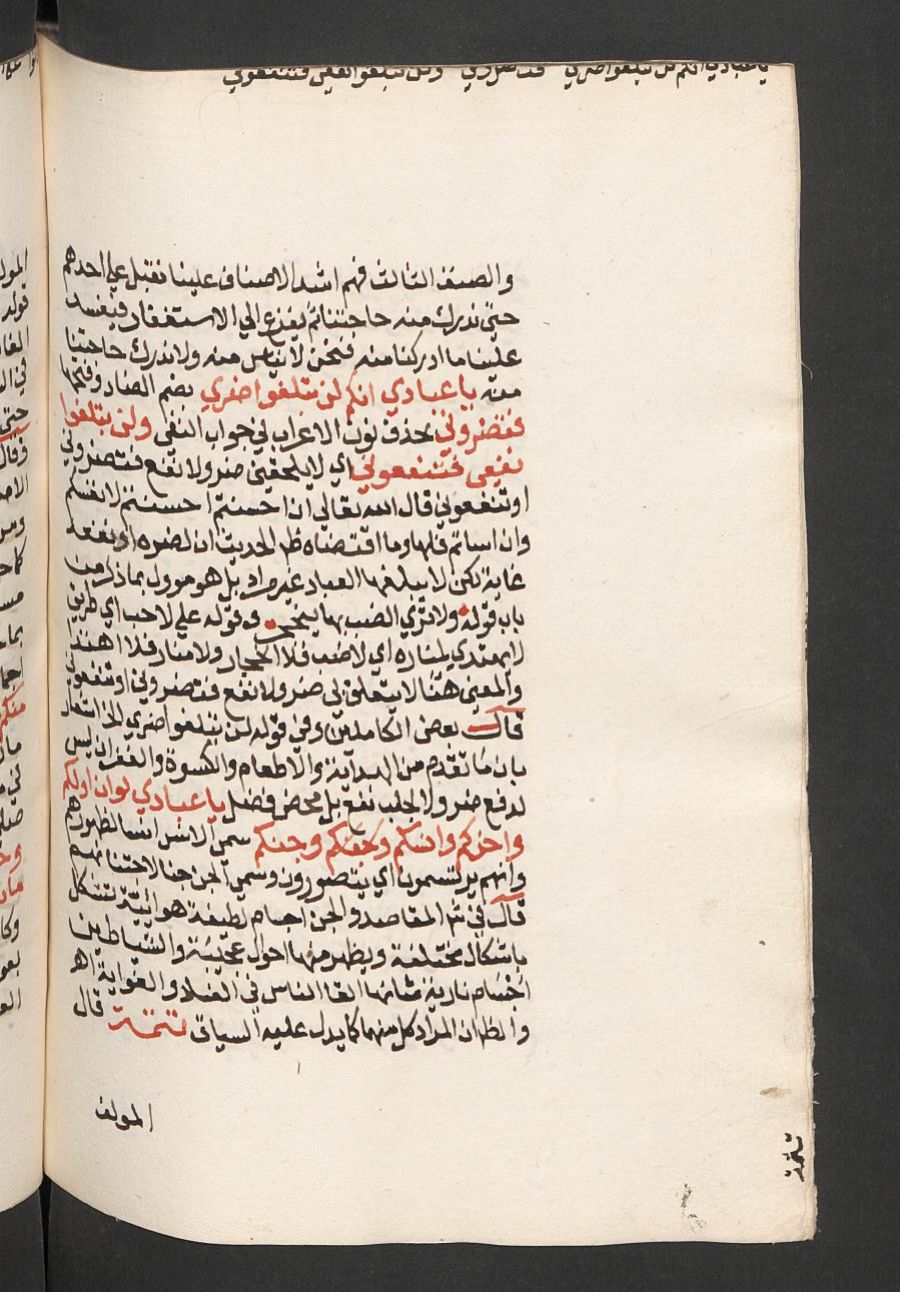 يا عبادي انكم لن تبلغوا ضري فتضروني ولن تبلغوا نفعي فتنفعوني
والصنف الثالث فهم اشد الاصناف علينا نقبل علي احدهم
حتي ندرك منه حاجتنا ثم يفزع الي الاستغفار فيفسد
علينا ما ادركنا منه فنحن لا نيأس منه ولا ندرك حاجتنا
منه يا عبادي انكم لن تبلغوا ضري بضم الضاد وفتحها
فتضروني بحذف نون الاعراب في جواب النفي ولن تبلغوا
نفعي فتنفعوني اي لا يلحقني ضر ولا نفع فتضروني
او تنفعوني قال الله تعالي ان احسنتم احسنتم لانفسكم
وان اساتم فلها وما اقتضاه ظ الحديث ان لضره او نفعه
غاية لكن لا يبلغها العباد غير مراد بل هو موول بما ذكر من
باب قوله ولا تري الضب بها ينجحر وقوله علي لاحب اي طريق
لا يهتدي لمناره اي لا ضب فلا انجحار ولا منار فلا اهتدا
والمعني هنا لا يتعلق بي ضر ولا نفع فتضروني او تنفعوني
قال بعض الكاملين وفي قوله لن تبلغوا ضري الخ اشعار
بان ما تقدم من الهداية والاطعام والكسوة والغفران ليس
لدفع ضر ولا لجلب نفع بل محض فضل يا عبادي لو ان اولكم
واخركم وانسكم وجنكم سمي الانس انسا لظهورهم
وانهم يونسون اي يبصرون وسمي الجن جنا لاجتنانهم
قال في شرح المقاصد والجن اجسام لطيفة هوائية تتشكل
باشكال مختلفة ويظهر منها احوال عجيبة والشياطين
اجسام نارية شانها القا الناس في الفساد والغواية اهـ
والظ ان المراد كل منهما كما يدل عليه السياق تتمة قال
المولف
تتمة